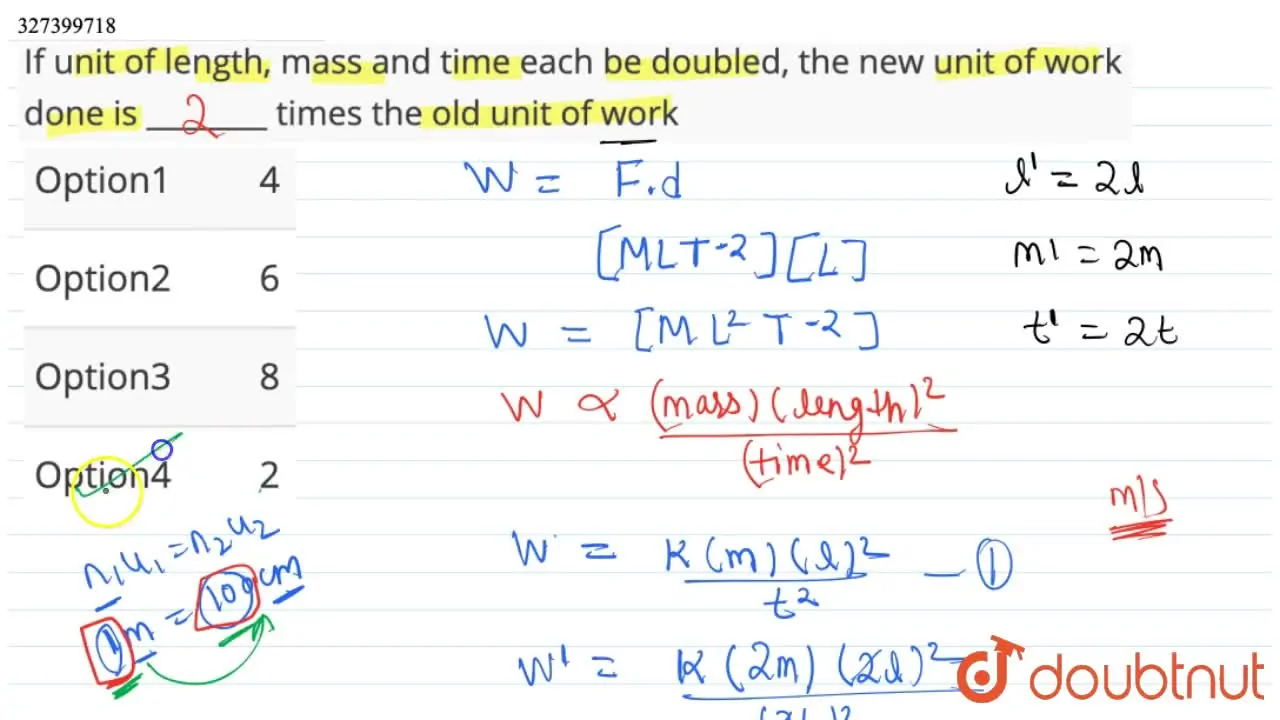 327399718
If unit of length, mass and time each be doubled, the new unit of work
done is 2 times the old unit of work
Option1 4
Option2 6
Option3 8
Option4 2
W = F.d
[MLT-2][L]
W = [M L² T-2]
W ∝ (mass)(length)²
(time)²
W = K(m)(l)² — ①
t²
W' = K(2m)(2l)²
l' = 2l
m' = 2m
t' = 2t
m/s
n₁u₁ = n₂u₂
1m = 100cm
doubtnut